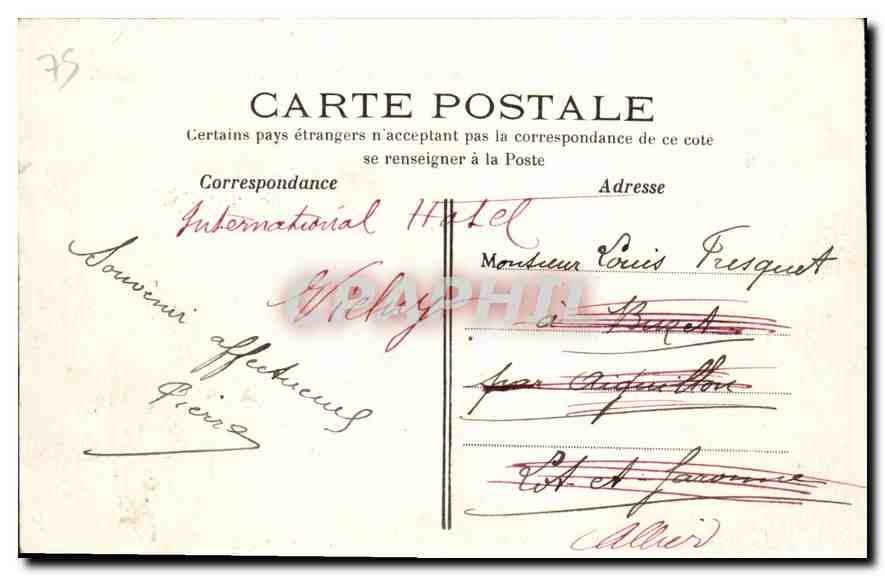 75
CARTE POSTALE
Certains pays étrangers n'acceptant pas la correspondance de ce cote
se renseigner à la Poste
Correspondance
Adresse
International Hotel
Vichy
Souvenir affectueux
Pierre
Monsieur Louis Fresquet
à Buzet
par Aiguillon
Lot-et-Garonne
Allier
CARAPHIL